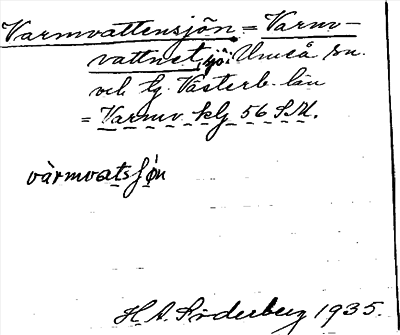 Varmvattensjön = Varmv-
vattnet, sjö i Umeå sn.
och lg. Västerb. län
= Varmv. klg 56 S.M.
värmvatsjøn
H. A. Söderberg 1935.